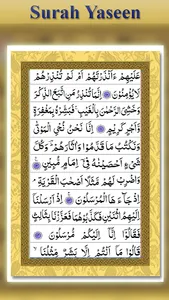 Surah Yaseen
عَلَيْهِمْ ءَاَنْذَرْتَهُمْ اَمْ لَمْ تُنْذِرْهُمْ
لَا يُؤْمِنُوْنَ اِنَّمَا تُنْذِرُ مَنِ اتَّبَعَ الذِّكْرَ
وَخَشِيَ الرَّحْمٰنَ بِالْغَيْبِ فَبَشِّرْهُ بِمَغْفِرَةٍ
وَّاَجْرٍ كَرِيْمٍ اِنَّا نَحْنُ نُحْيِ الْمَوْتٰى
وَنَكْتُبُ مَا قَدَّمُوْا وَاٰثَارَهُمْ وَكُلَّ
شَيْءٍ اَحْصَيْنٰهُ فِيْ اِمَامٍ مُّبِيْنٍ
وَاضْرِبْ لَهُمْ مَّثَلًا اَصْحٰبَ الْقَرْيَةِ
اِذْ جَآءَهَا الْمُرْسَلُوْنَ اِذْ اَرْسَلْنَا
اِلَيْهِمُ اثْنَيْنِ فَكَذَّبُوْهُمَا فَعَزَّزْنَا بِثَالِثٍ
فَقَالُوْٓا اِنَّآ اِلَيْكُمْ مُّرْسَلُوْنَ
قَالُوْا مَآ اَنْتُمْ اِلَّا بَشَرٌ مِّثْلُنَا